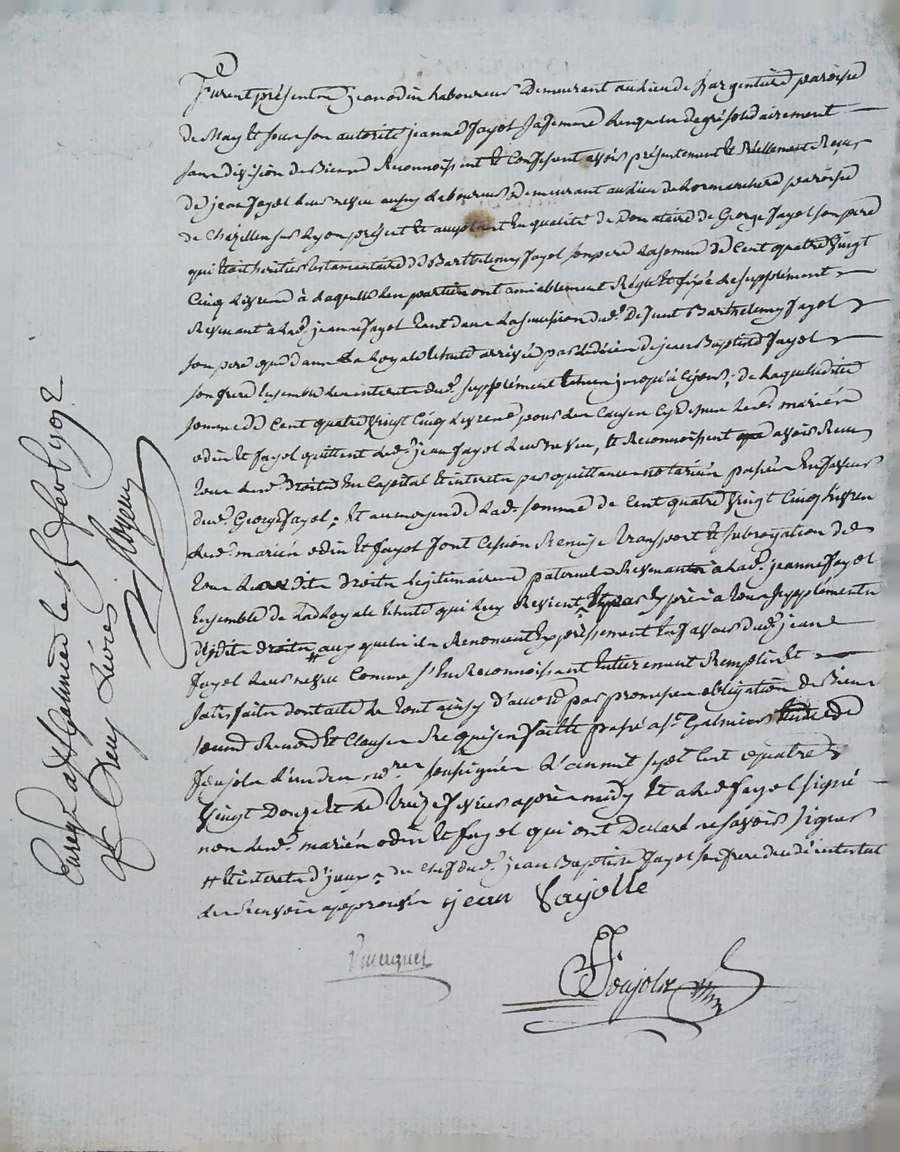 Furent présents jean odin laboureur Demeurant au lieu de l'argentière paroisse
de May Et sous son autorité jeanne fayol sa femme Lesquels de gré solidairement
sans division de Biens Reconnoissent Et Confessent avoir présentement Et Réellement Reçu
de jean fayol leur neveu aussy laboureur Demeurant au lieu de paroisse
de Chazelles sur Lyon présent Et acceptant En qualité de Donataire de George fayol son père
qui étoit héritier testamentaire de Barthelemy fayol son père la somme de Cent quatre vingt
Cinq Livres à laquelle les parties ont amiablement Réglé Et fixé le supplément
Revenant à lad. jeanne fayol tant dans la succession dud. Defunt Barthelemy fayol
son père que dans la Royale échute arrivée par le décès de jean Baptiste fayol
son frère Ensemble les interets dud. supplément Et échute jusqu'à Ce jour; de laquelle ditte
somme de Cent quatre vingt Cinq Livres pour les Causes Cy dessus lesd. mariés
odin Et fayol quittent led. jean fayol leur neveu, Et Reconnoissent avoir Reçu
tous lesd. Droits En Capital Et interets par quittances notariées passées En faveur
dud. George fayol; Et au moyen de lad. somme de Cent quatre vingt Cinq Livres
lesd. mariés odin Et fayol font Cession Remise transport Et subrogation de
tous lesdits droits légitimaires paternels Revenants à lad. jeanne fayol
Ensemble de lad Royale échute qui luy Revient Et par Exprès à tous supplements
desdits droits # auxquels ils Renoncent Expressement En faveur dud. jean
fayol leur neveu Comme s'En Reconnoissant Entierement Remplis Et
satisfaits dont acte le tout ainsy d'accord par promesses obligation de Biens
soumd Renond Et Clauses Requises fait Et passé a St. Galmier Etude de
foujols L'un des nres. soussignés L'an mil sept cent quatre
vingt Douze Et le treize fevrier après midy Et a led fayol signé
non lesd. mariés odin Et fayol qui ont Declaré ne savoir signer
# Et interets d'iceux du Chef dud. jean Baptiste fayol son frere décédé intestat
les Renvois approuvés jean fayolle
foujols
Enregé a St Galmier le fev 1792
Livres